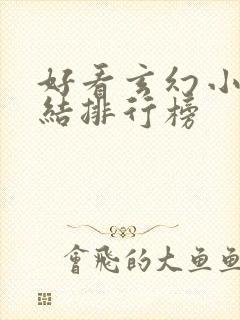 好看玄幻小
結排行榜
會飛的大魚魚